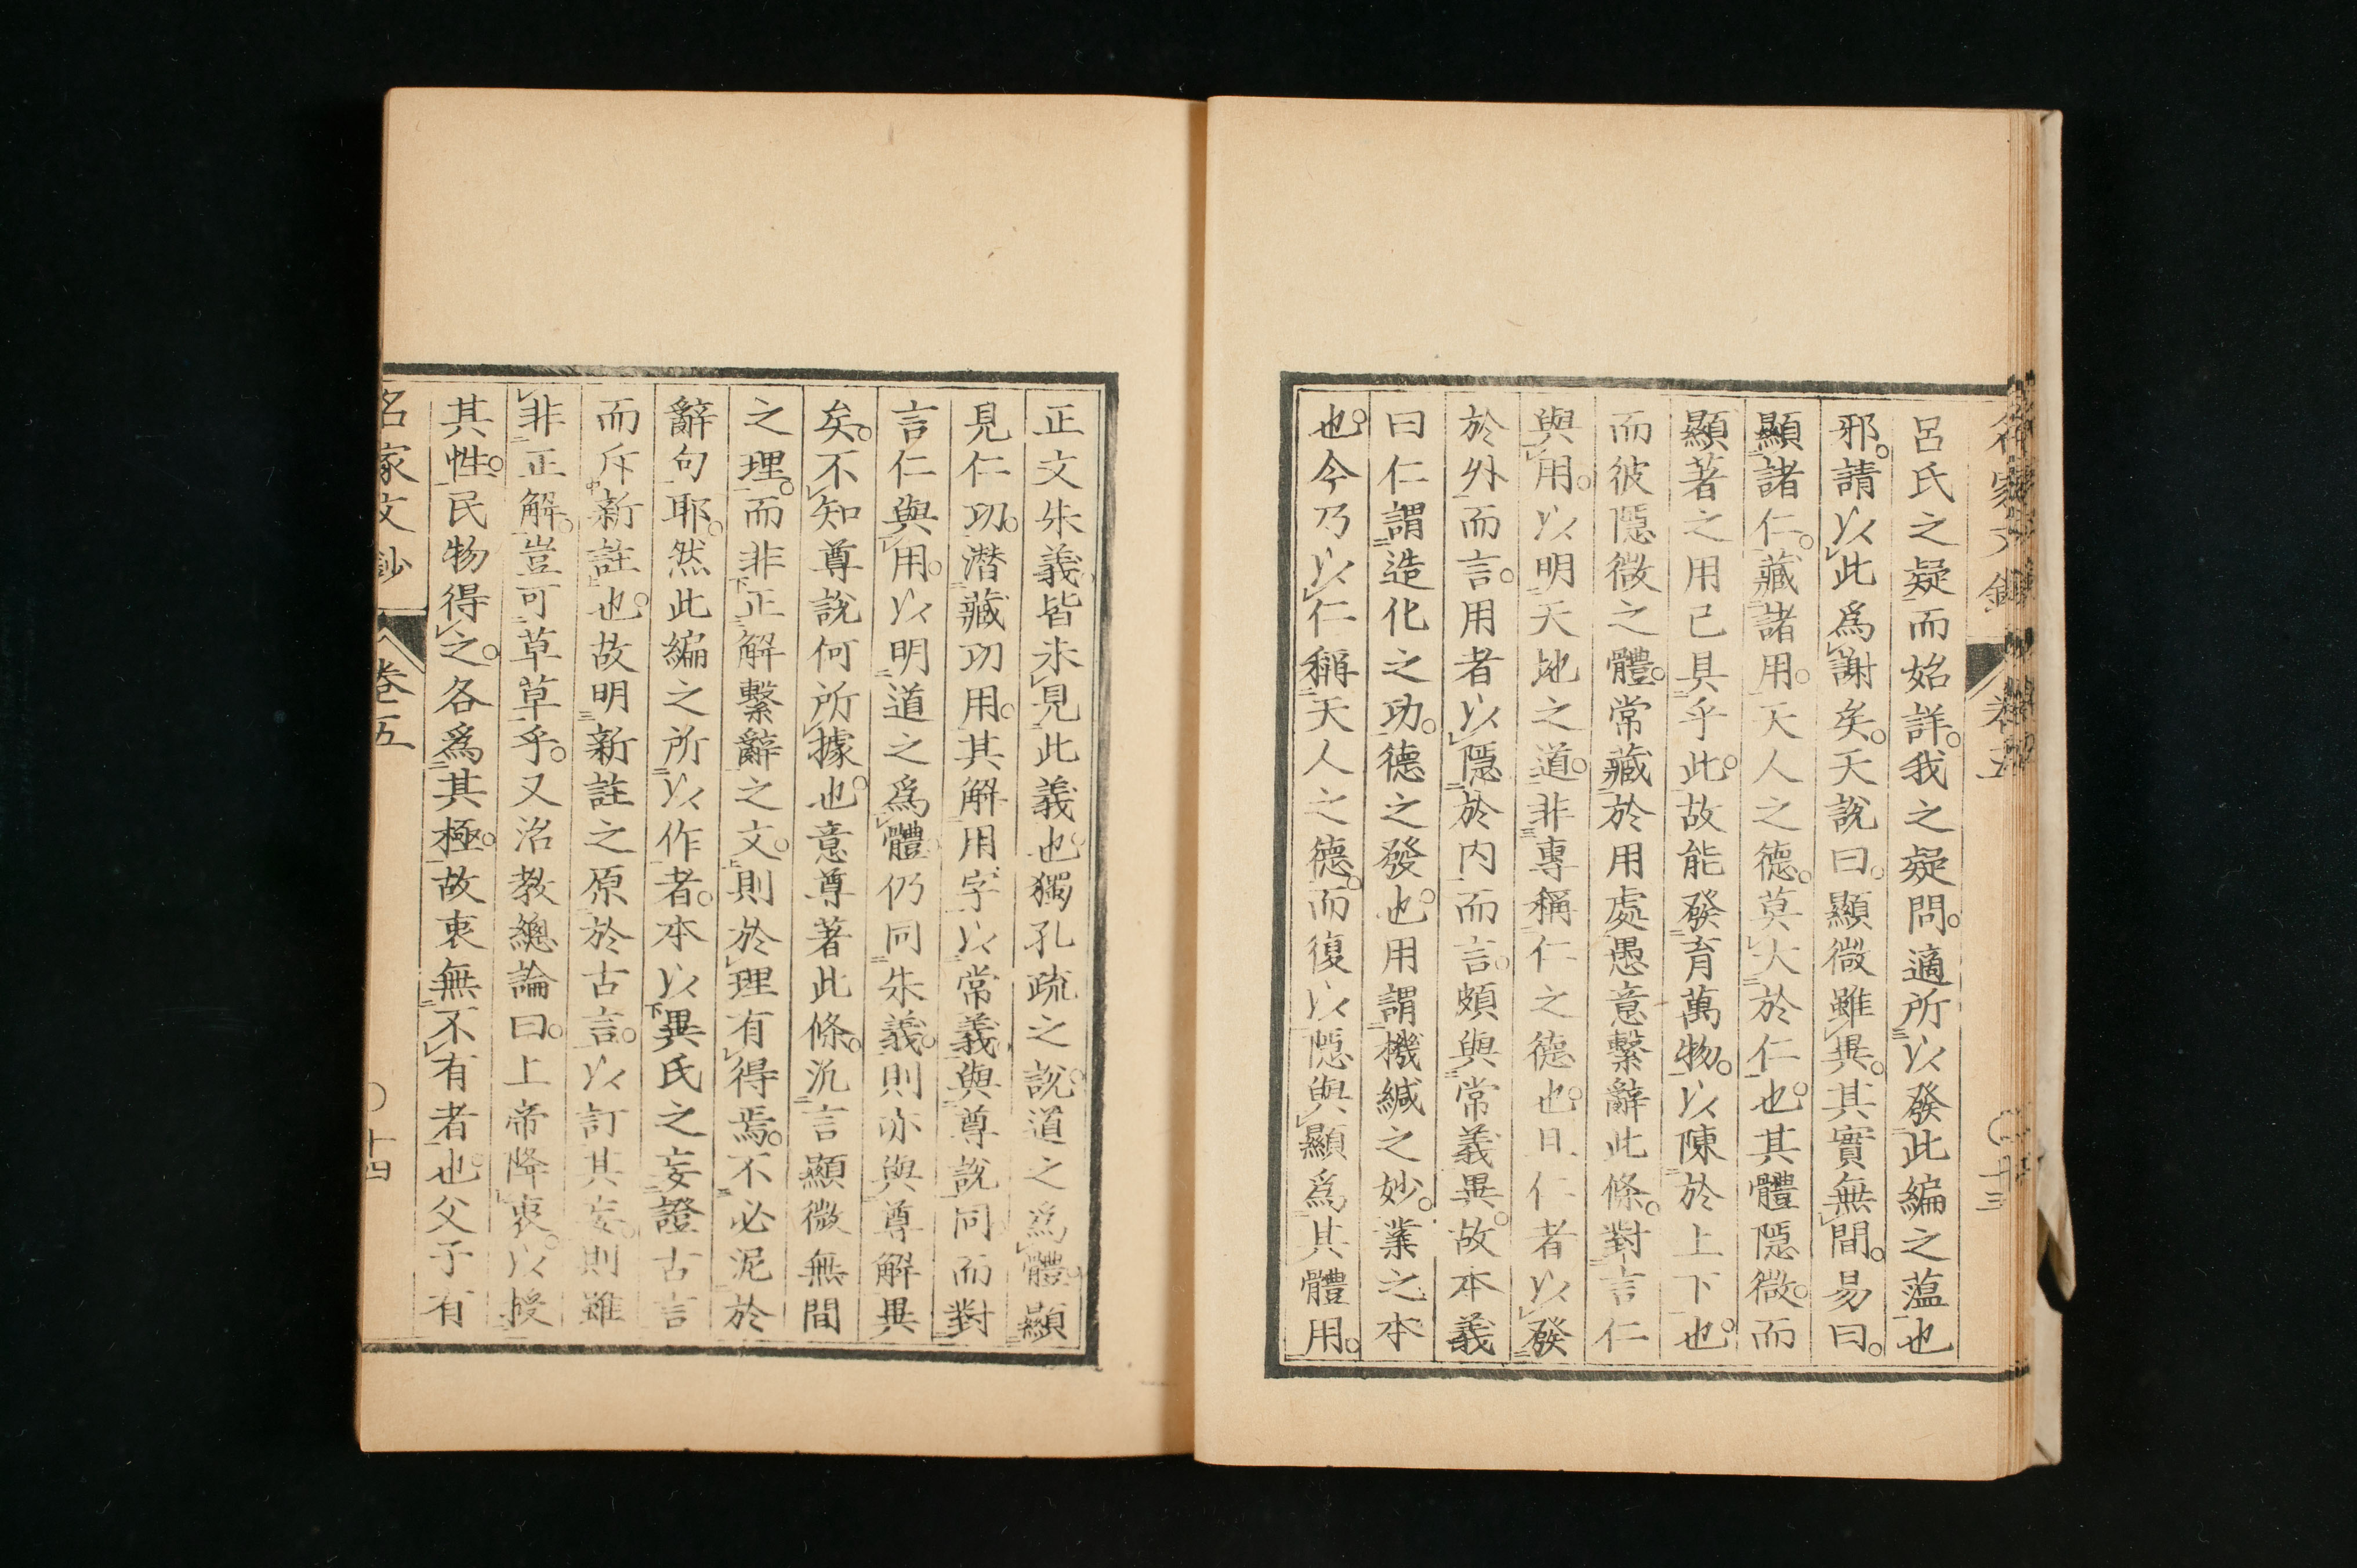 名家文鈔 卷五 ○十三
呂氏之疑而始詳。我之疑問。適所以發此編之薀也
邪。請以此爲謝矣。天說曰。顯微雖異。其實無間。易曰。
顯諸仁。藏諸用。天人之德。莫大於仁也。其體隱微。而
顯著之用已具乎此。故能發育萬物。以陳於上下也。
而彼隱微之體。常藏於用處愚意繫辭此條。對言仁
與用。以明天地之道。非專稱仁之德也。且仁者以發
於外而言。用者以隱於内而言。頗與常義異。故本義
曰仁謂造化之功。德之發也。用謂機緘之妙。業之本
也。今乃以仁稱天人之德。而復以隱與顯爲其體用。
正文朱義皆未見此義也。獨孔疏之說。道之爲體。顯
見仁功。潛藏功用。其解用字以常義與尊說同而對
言仁與用。以明道之爲體。仍同朱義。則亦與尊解異
矣。不知尊說何所據也。意尊著此條。汎言顯微無間
之理。而非正解繫辭之文。則於理有得焉。不必泥於
辭句耶。然此編之所以作者。本以異氏之妄證古言
而斥新註也。故明新註之原於古言。以訂其妄。則雖
非正解。豈可草草乎。又洺教總論曰。上帝降衷。以授
其性。民物得之。各爲其極。故衷無不有者也。父子有
名家文鈔 卷五 ○十四